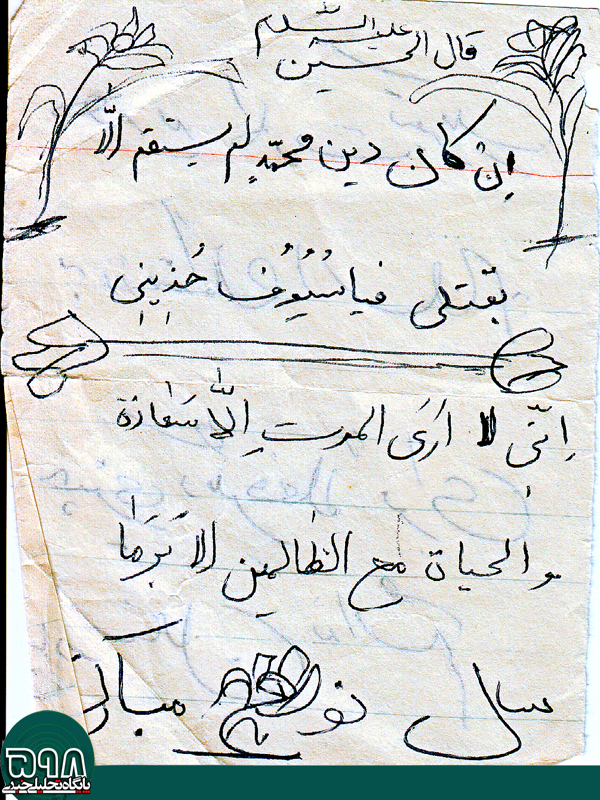 قال الحسین علیه السّلام
إنْ کان دین محمّدٍ لم یستقم الّا
بقتلی فیاسُیُوُفُ خُذِینِی
اِنّی لا اَرَی الموت اِلّا سَعادَة
والحیاة مع الظالمین الا بَرَمَا
سال نو مبارک
۵۹۸
پایگاه تحلیلی خبری